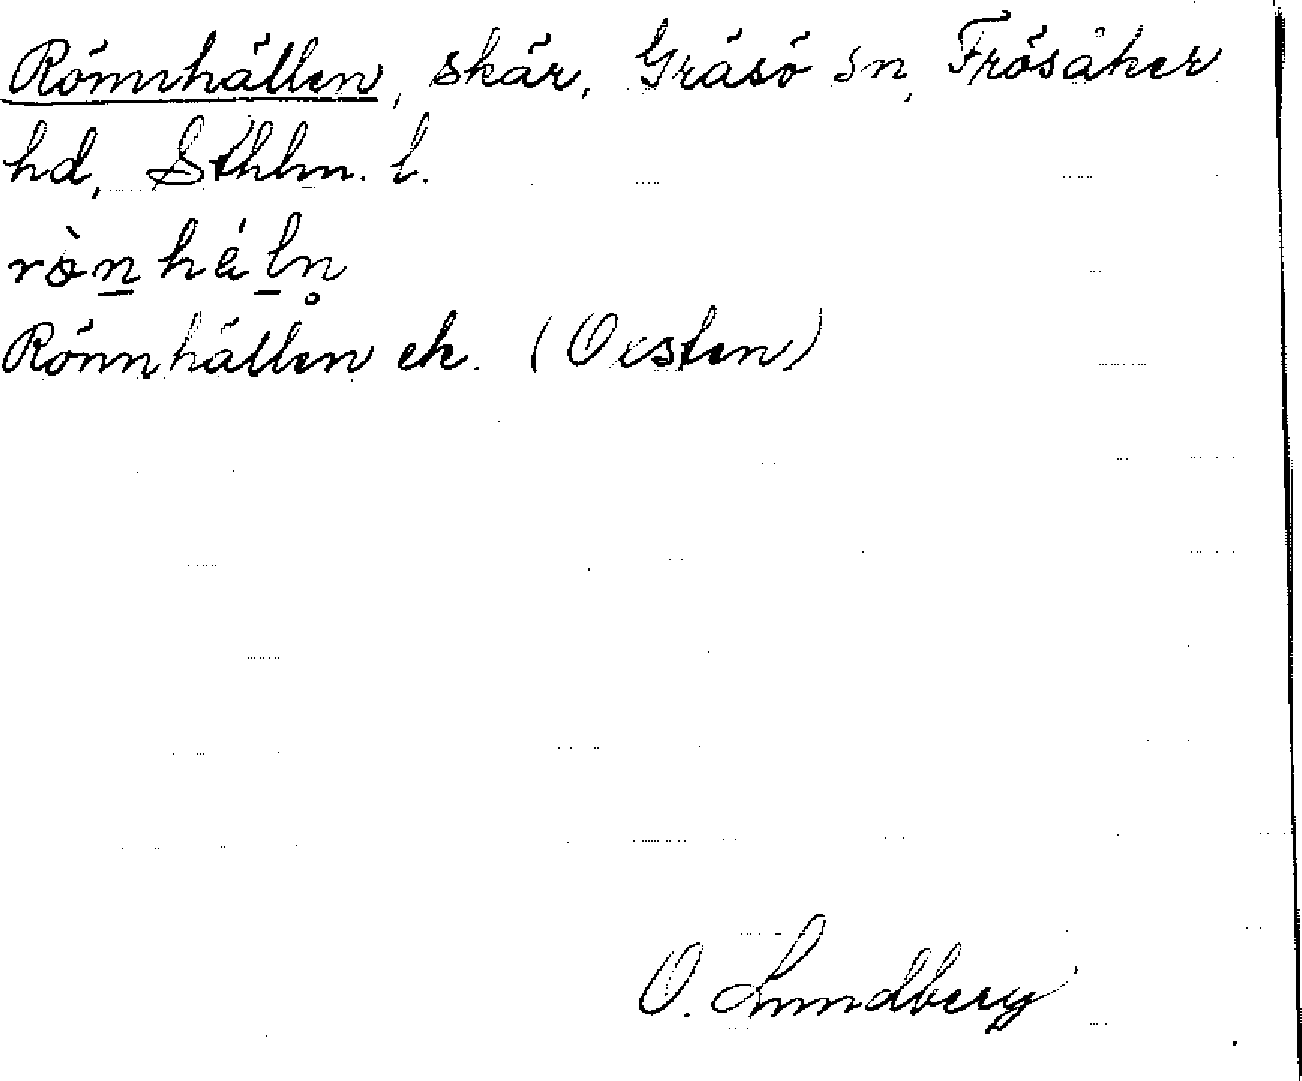 Rönnhällen, skär, Gräsö sn, Frösåker
hd, Sthlm. l.
rö̀n̲hä́l̲n̥
Rönnhällen ek. (Oesten)
O. Lundberg